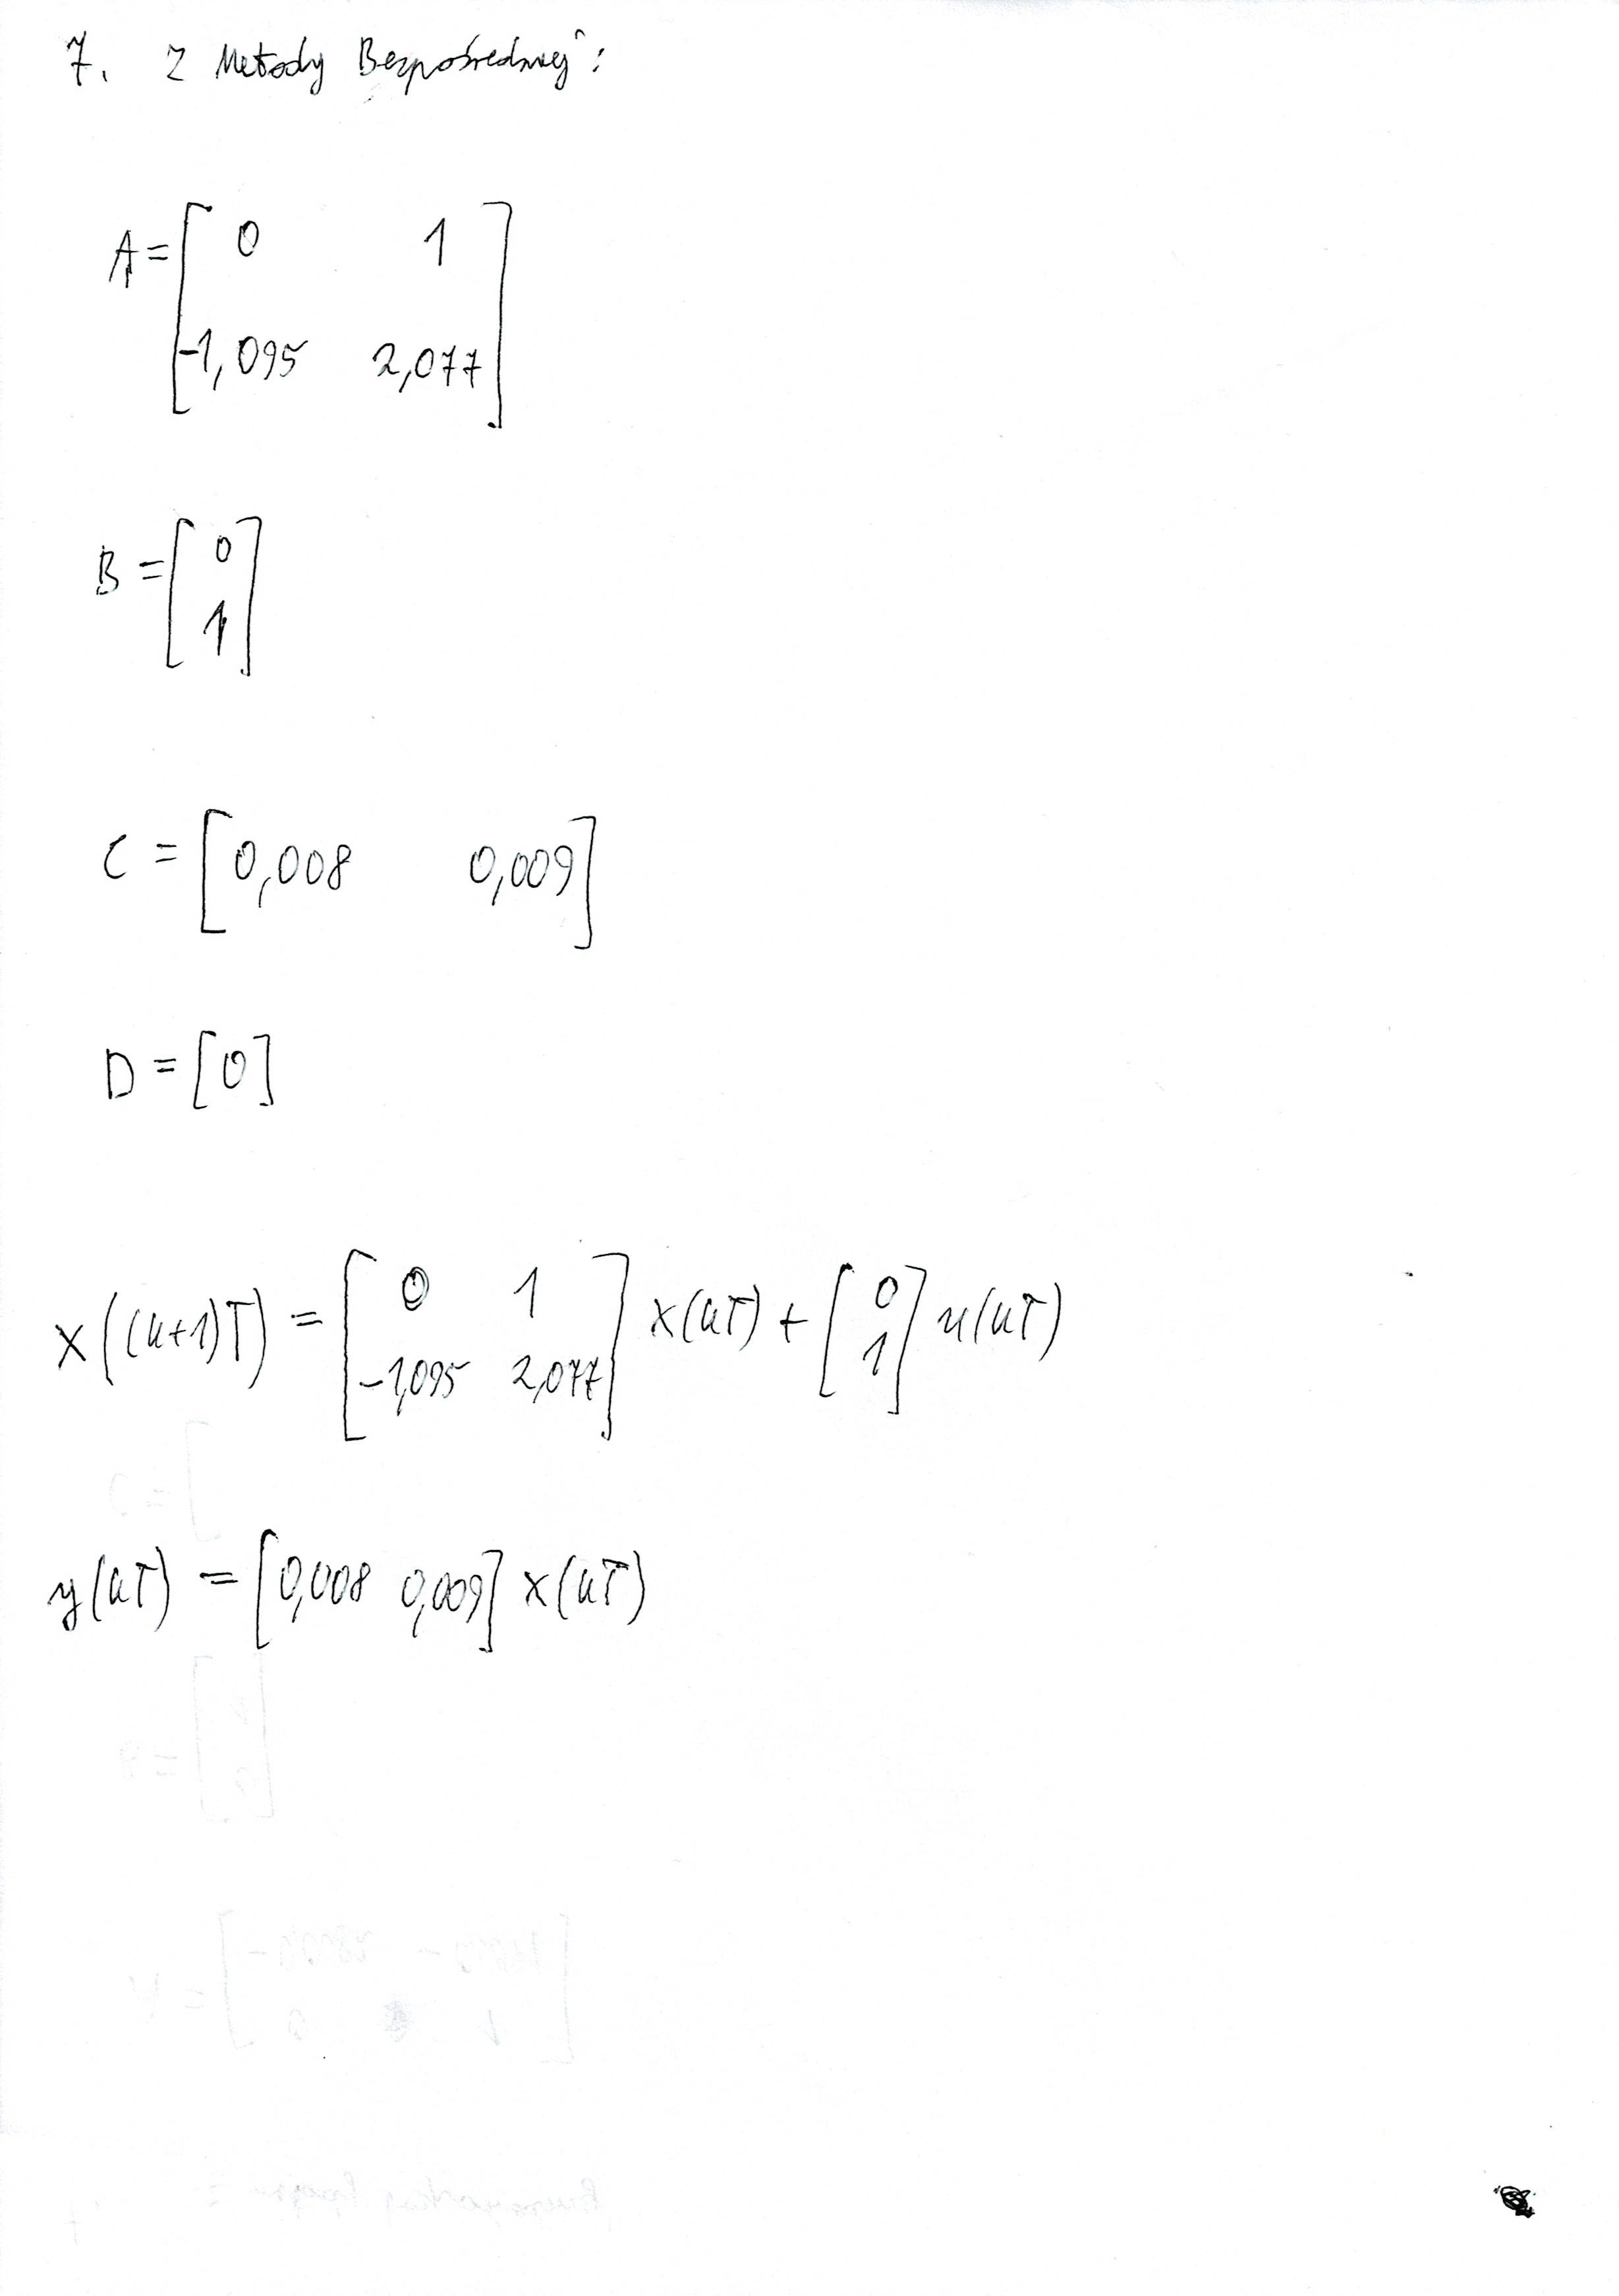 7. Z Metody Bezpośredniej:
A = [ 0 1
-1,095 2,077 ]
B = [ 0
1 ]
C = [ 0,008 0,009 ]
D = [0]
x((k+1)T) = [ 0 1
-1,095 2,077 ] x(kT) + [ 0
1 ] u(kT)
y(kT) = [0,008 0,009] x(kT)